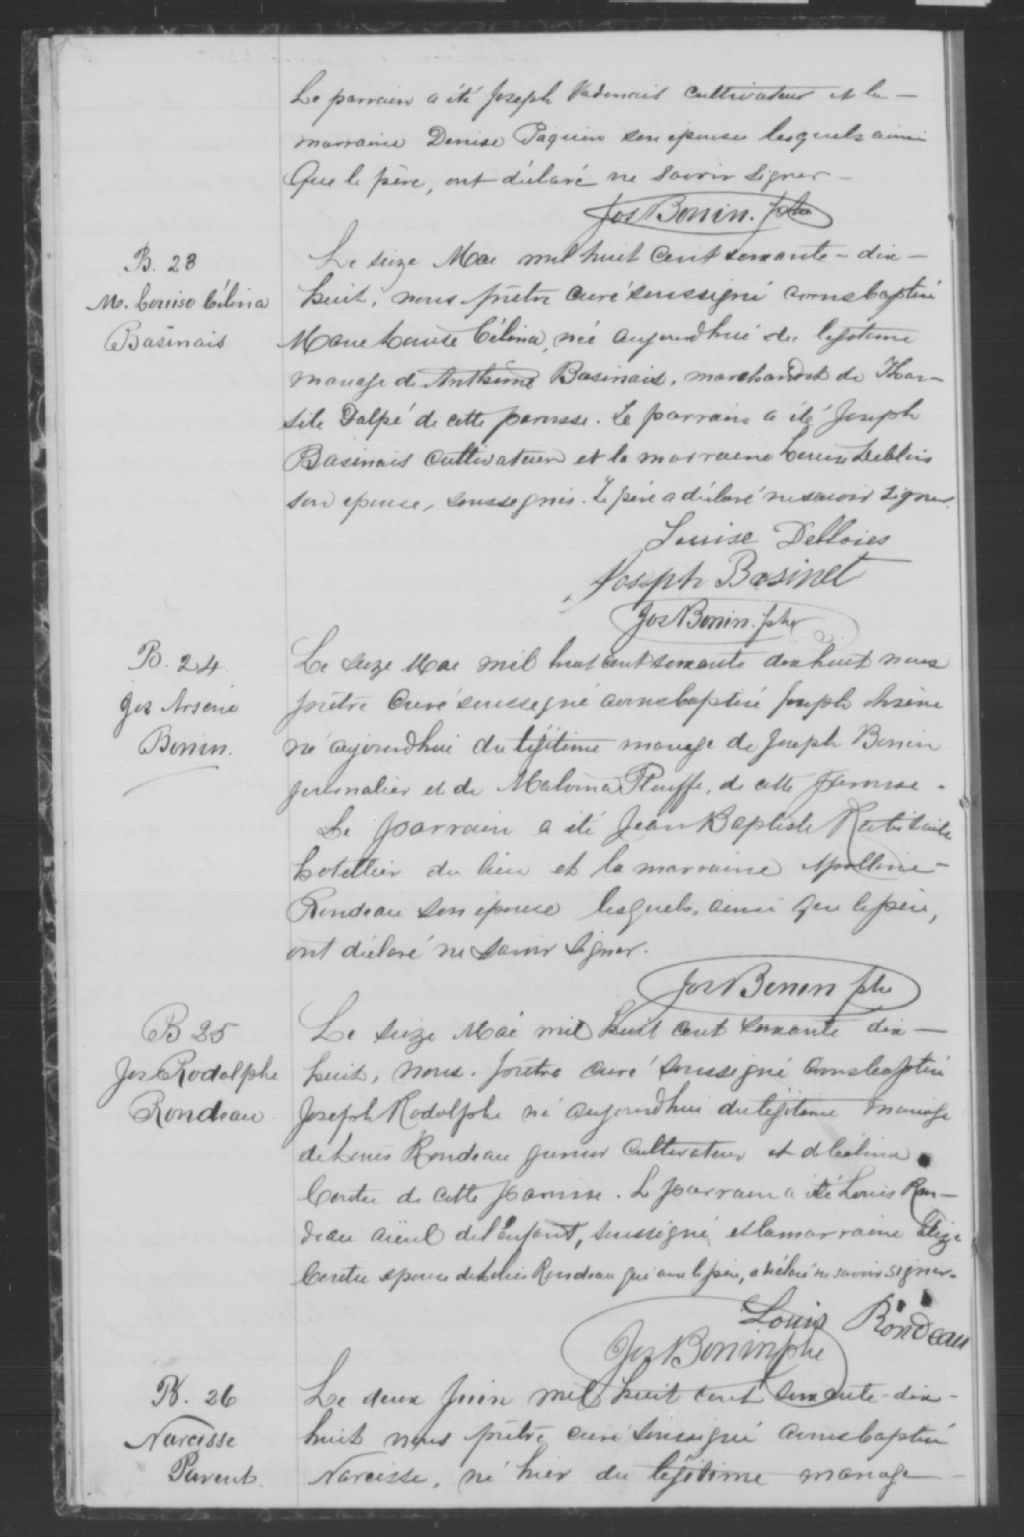 Le parrain a été Joseph Vadenais cultivateur et la –
marraine Denise Paquin son épouse lesquels ainsi
que le père, ont déclaré ne savoir signer –
Jos Bonin. ptre
B. 23
M. Louise Célina
Basinais
Le seize Mai mil huit cent soixante – dix –
huit, nous prêtre curé soussigné avons baptisé
Marie Louise Célina, née aujourdhui du légitime
mariage de Anthime Basinais, marchand et de Thar–
sile Dalpé de cette paroisse. Le parrain a été Joseph
Basinais cultivateur et la marraine Louise Deblois
son épouse, soussignés. Le père a déclaré ne savoir signer.
Louise Debloies
Joseph Basinet
Jos Bonin. ptre
B. 24
Jos Arsène
Bonin.
Le seize Mai mil huit cent soixante dix huit nous
prêtre curé soussigné avons baptisé Joseph Arsène
né aujourdhui du légitime mariage de Joseph Bonin
journalier et de Malvina Plouffe, de cette paroisse.
Le parrain a été Jean Baptiste Robitaille
hotellier du lieu et la marraine Apolline –
Rondeau son épouse lesquels, ainsi que le père,
ont déclaré ne savoir signer.
Jos Bonin ptre
B 25
Jos Rodolphe
Rondeau
Le seize Mai mil huit cent soixante dix –
huit, nous. prêtre curé soussigné avons baptisé
Joseph Rodolphe né aujourdhui du légitime mariage
de Louis Rondeau junior cultivateur et de Célina
Coutu de cette paroisse. L parrain a été Louis Ron–
deau aïeul de l'enfant, soussigné, et la marraine Elise
Coutu épouse de Louis Rondeau qui avec le père, a déclaré ne savoir signer.
Louis Rondeau
Jos Bonin ptre
B. 26
Narcisse
Parent.
Le deux Juin mil huit cent soixante-dix-
huit nous prêtre curé soussigné avons baptisé
Narcisse, né hier du légitime mariage –